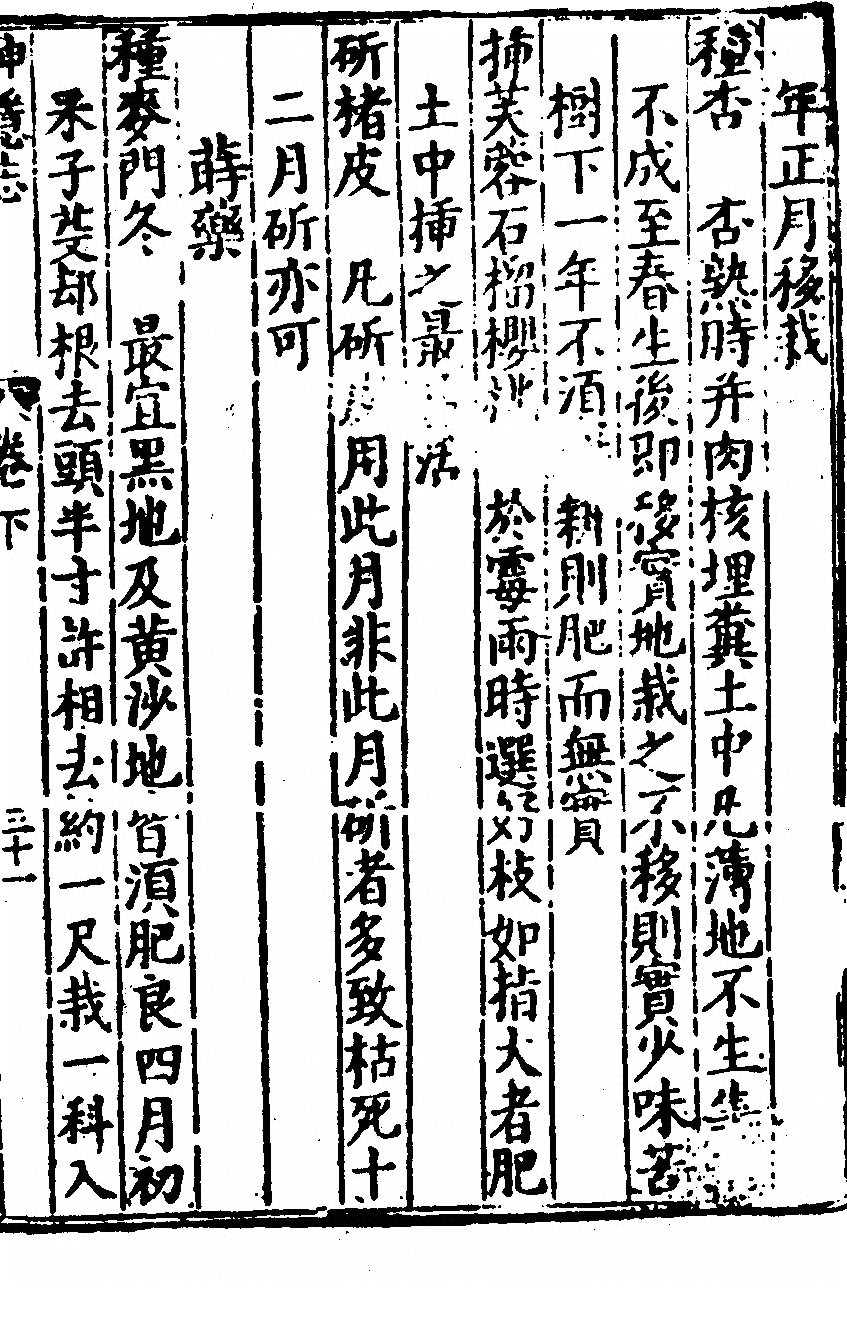 年正月移栽
種杏 杏熟時并肉核埋糞土中凡薄地不生生
不成至春生後即移實地栽之不移則實少味苦
樹下一年不須 耕則肥而無實
揷芙蓉石榴櫻 於霉雨時選好枝如指大者肥
土中揷之最 活
斫楮皮 凡斫 用此月非此月斫者多致枯死十
二月斫亦可
蒔藥
種麥門冬 最宜黑地及黄沙地皆須肥良四月初
采子芟却根去頭半寸許相去約一尺栽一科入
神隱志 卷下 三十一